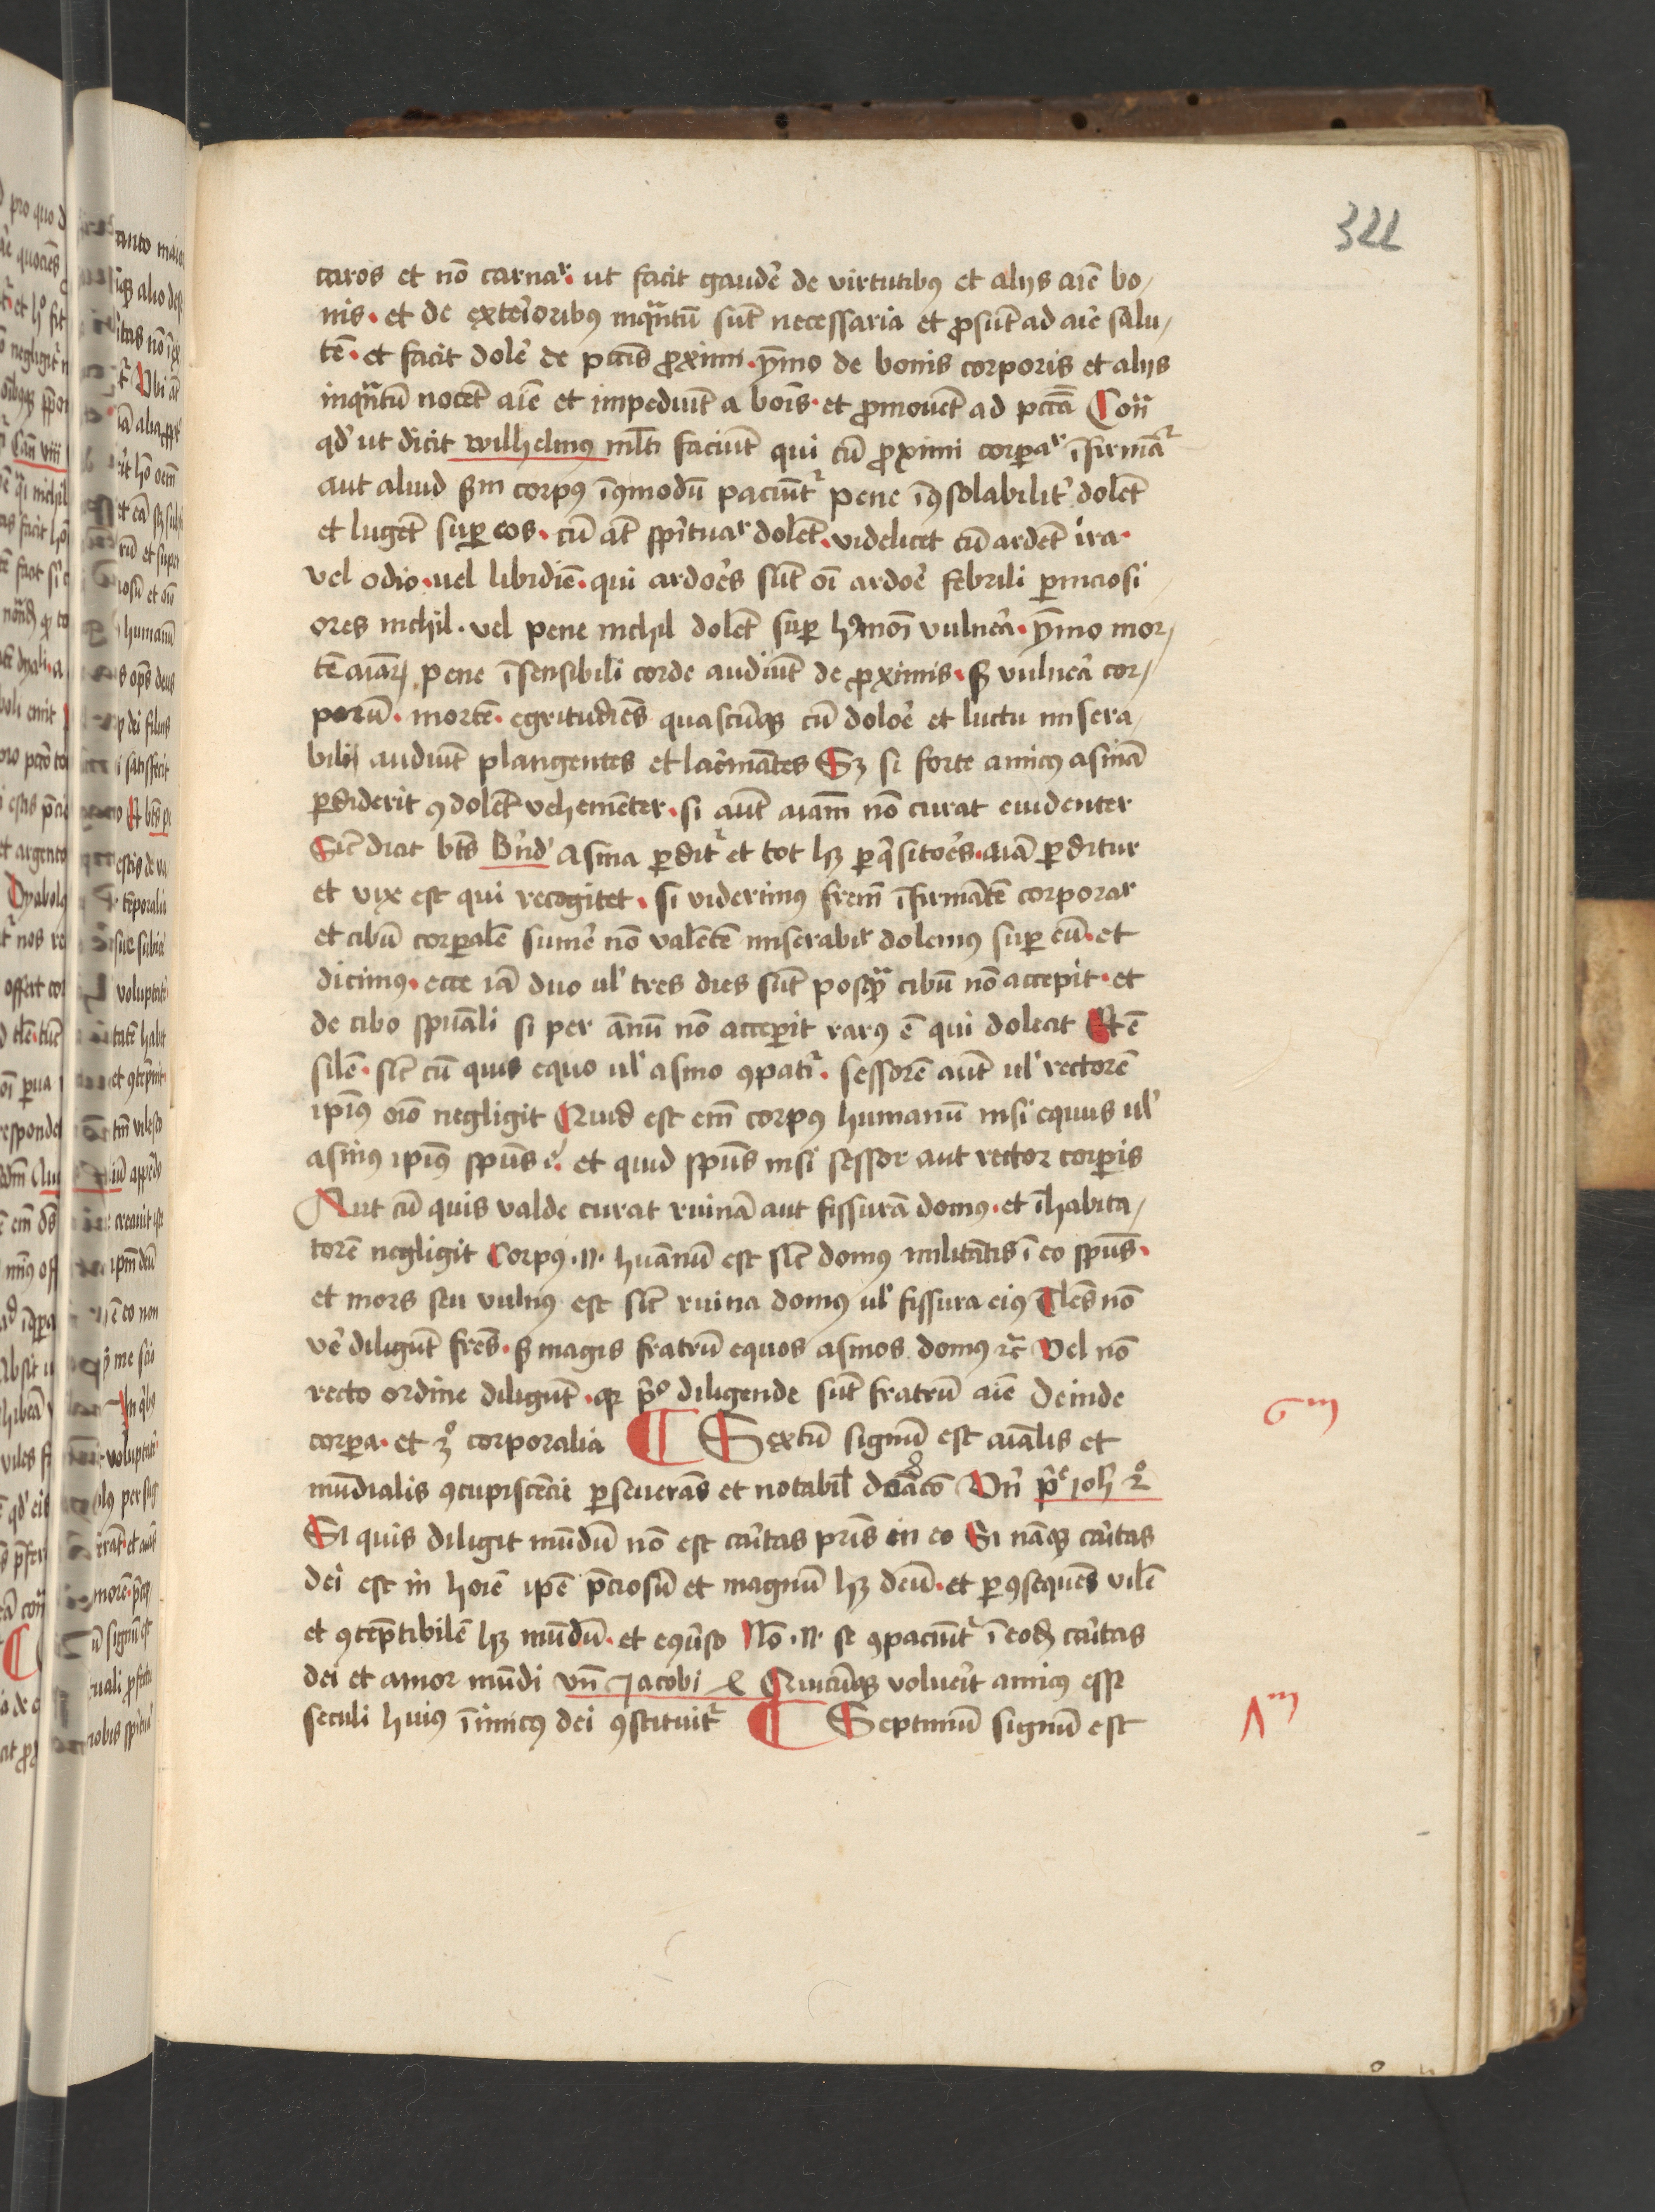 322
caros et nō carnar̄. ut facit gaudē de virtutibꝰ et alijs aīe bo/
nis. et de exteīoribꝰ inqᷓntū sūt necessaria et ꝓsūt ad aīe salu/
tē. et facit dolē de pctīs ꝓximi. ȳmo de bonis corporis et alijs
inqᷓntū nocēt aīe et impediūt a boīs. et ꝓmouēt ad pctā Con̄
qd' ut dicit wilhelmꝰ ml̄ti faciūt qui cū ꝓximi corꝑar̄ īfirmāt᷑
aut aliud ẜm corpꝰ īꝯmodū paciūt᷑ pene īꝯsolabilit᷑ dolēt
et lugēt suꝑ eos. cū at̄ spīrituar̄ dolēt. videlicet cū ardēt ira.
vel odio. uel libidīe. qui ardoēs sūt oī ardoē febrili ꝑniciosi
ores nichil. vel pene nichil dolēt suꝑ hꝰmōi vulnēa. ȳmo mor/
tē aīaꝝ pene īsensibili corde audiūt de ꝓximis. ꟊ vulnēa cor/
porū. mortē. egritudīes quascūqꝫ cū doloē et luctu misera/
bili audiūt plangentes et lac̄mātes Sꝫ si forte amicꝰ asinā
ꝑdiderit ꝯdolēt vehemēter. si aūt aīam nō curat euidenter
Sic̄ dicit bt̄s b'nd' Asina ꝑdit᷑ et tot hꝫ ꝑq̄sitoēs. aīā ꝑditur
et vix est qui recogitet. si viderimꝰ frem̄ īfirmātē corporar̄
et cibū corꝑalē sumē nō valētē miserabir̄ dolemꝰ suꝑ eū. et
dicimꝰ. ecce iā duo ul' tres dies sūt posqᷓ cibū nō accepit. et
de cibo spūali si per annū nō acceꝑit rarꝰ ē qui doleat Et ē
silē. sic̄ cū quis equo ul' asino ꝯpatit᷑. sessorē aūt ul' rectorē
ipīꝰ oīo negligit Quid est em̄ corpꝰ humanū nisi equus ul'
asinꝰ ipīꝰ spūs ē. et quid spūs nisi sessor aut rector corꝑis
Aut cū quis valde curat ruinā aut fissurā domꝰ. et īhabita/
torē negligit Corpꝰ .n. huānū est sic̄ domꝰ militātis ī eo spūs.
et mors seu vulnꝰ est sic̄ ruina domꝰ ul' fissura eiꝰ Tles nō
vē diligūt fres. ꟊ magis fratrū equos asinos domꝰ ⁊c̄ Vel nō
recto ordine diligūt. qꝛ pͦ diligende sūt fratrū aīe deinde
corꝑa. et 3ͦ corporalia ¶ Sextū signū est aīalis et
6m
mūdialis ꝯcupiscēcie ꝑseuerās et notabil̄ Vn̄ p̄ᵉ ioh' 2ͦ
Si quis diligit mūdū nō est cāitas pris̄ in eo Si nāqꝫ cāitas
dei est in hoīe ipē p̄ciosū et magnū hꝫ deū. et ꝑ ꝯsequēs vilē
et ꝯtēptibilē hꝫ mūdū. et eqūso Nō .n. se ꝯpaciūt᷑ ī eodē cāitas
dei et amor mūdi vn̄ Jacobi Quicūqꝫ voluēit amicꝰ esse
seculi huiꝰ īimicꝰ dei ꝯstituit᷑ ¶ Septimū signū est
7m